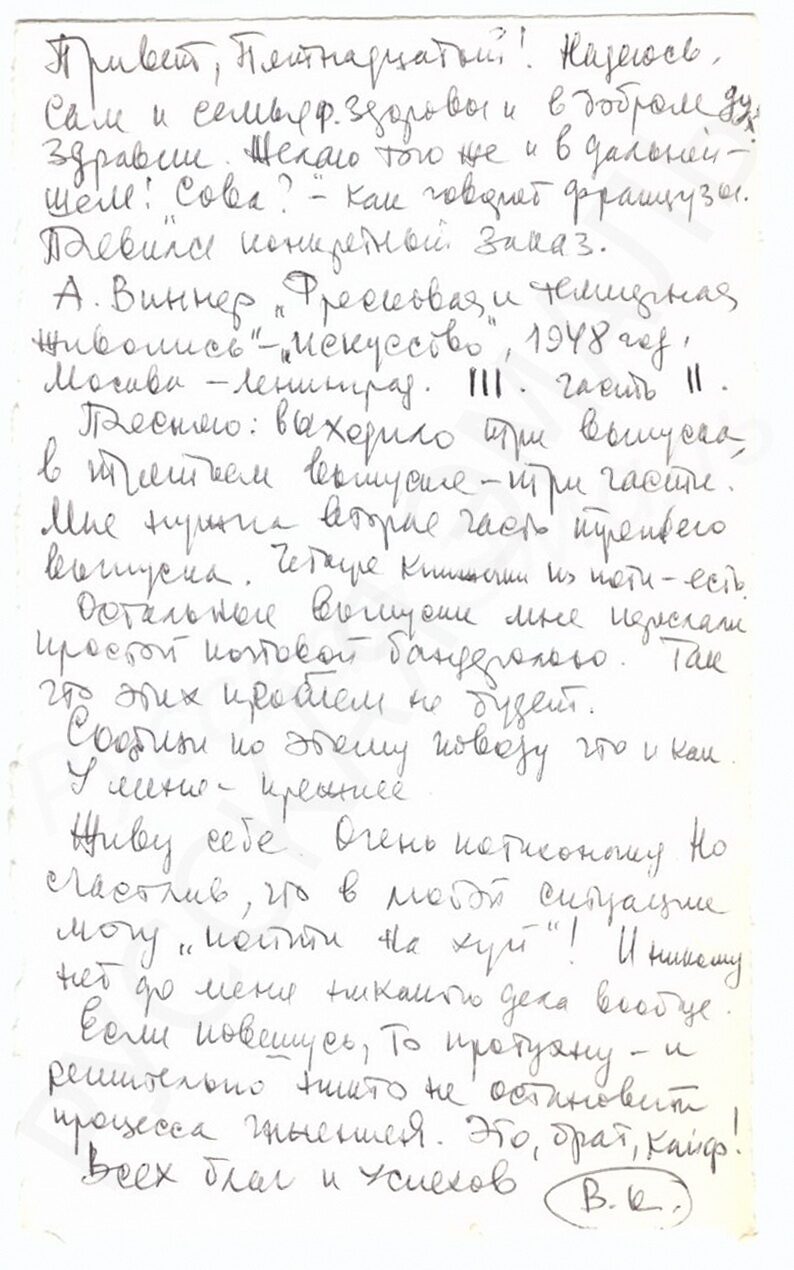 Привет, Пятнадцатый! Надеюсь,
Сам и семья здоровы и в добром
здравии. Желаю того же и в дальней-
шем! "Сова?" - как говорят французы.
Появился конкретный заказ.
А. Виннер „Фресковая и темперная
живопись" - „Искусство", 1948 год,
Москва - Ленинград. III. часть II.
Поясняю: выходило три выпуска,
в третьем выпуске - три части.
Мне нужна вторая часть третьего
выпуска. Четыре книжки из пяти - есть.
Остальные выпуски мне переслали
простой почтовой бандеролью. Так
что этих проблем не будет.
Сообщи по этому поводу что и как.
У меня - прежнее
Живу себе. Очень потихоньку Но
счастлив, что в любой ситуации
могу „пойти на хуй"! И никому
нет до меня никакого дела вообще.
Если повешусь, то протухну - и
решительно никто не остановит
процесса гниения. Это, брат, кайф!
Всех благ и успехов
В.К.